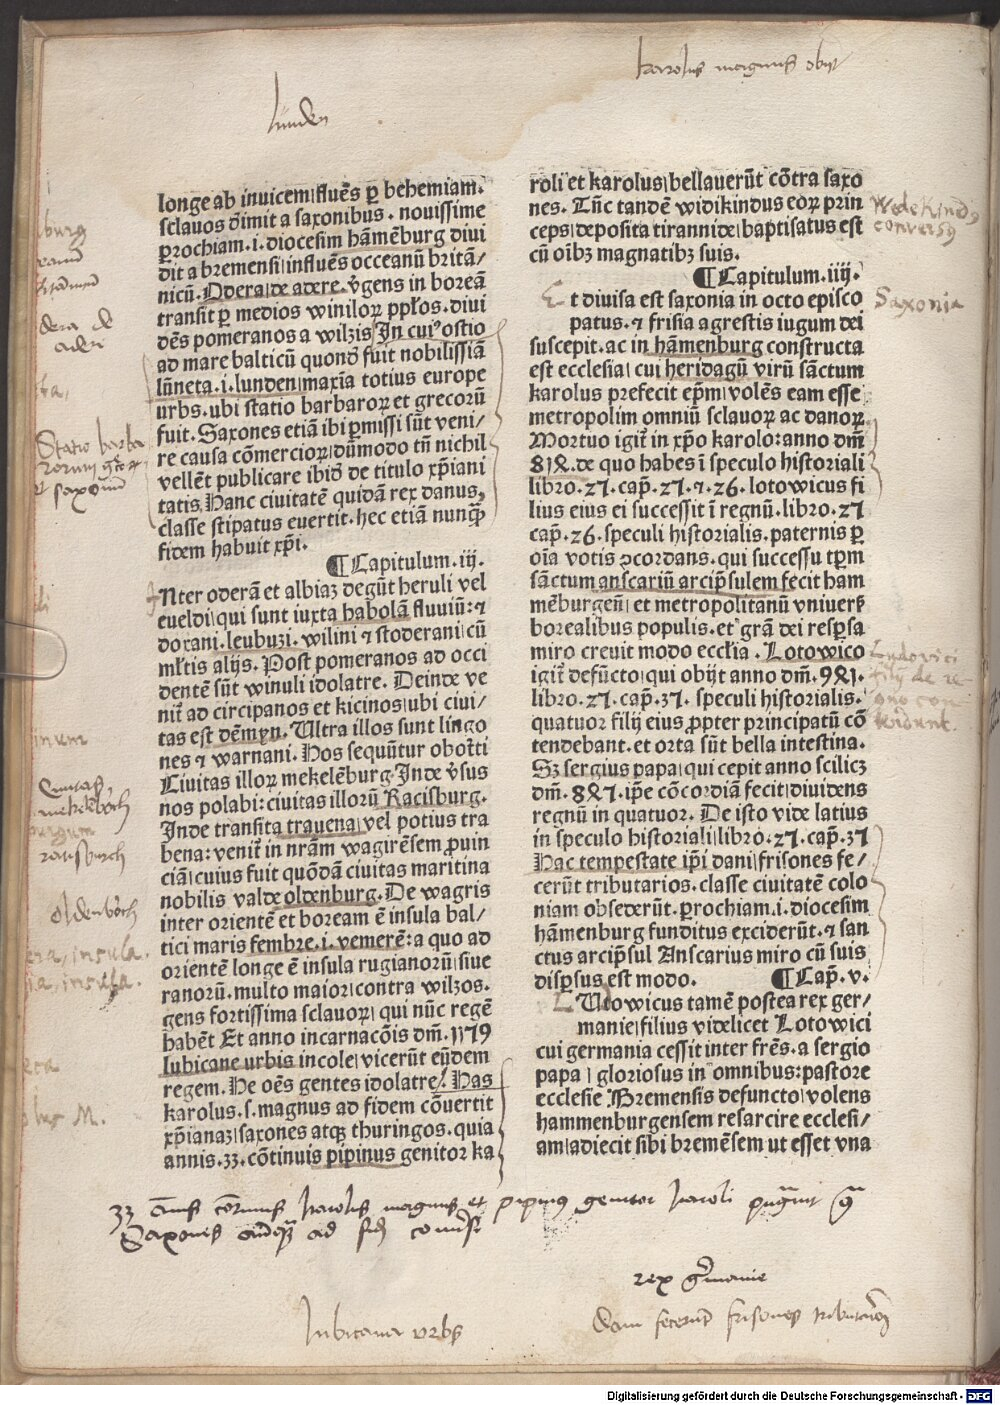 karolus magnus obijt
lunden
longe ab inuicem/fluēs ꝑ behemiam.
sclauos dīmit a saxonibus. nouissime
ꝑrochiam.i.diocesim hāmēburg diui
dit a bremensi/influēs occeanū britā/
nicū. Odera/de adere. v̄gens in boreā
transit ꝑ medios winiloꝝ pplos. diui
dēs pomeranos a wilzis/In cuiꝰ ostio
ad mare balticū quondā fuit nobilissiā
lūneta.i.lunden/maxīa totius europe
urbs. ubi statio barbaroꝝ et grecorū
fuit. Saxones etiā ibi ꝑmissi sūt veni/
re causa cōmercioꝝ/dūmodo tn̄ nichil
vellēt publicare ibidē de titulo xp̄iani
tatis. Hanc ciuitatē quidā rex danus,
classe stipatus euertit. hec etiā nunꝙ̄
fidem habuit xp̄i.
¶Capitulum.iij.
Nter oderā et albiaꝫ degūt heruli vel
eueldi/qui sunt iuxta habolā fluuiū: ⁊
doxani. leubuzi. wilini ⁊ stoderani/cū
ml̄tis alijs. Post pomeranos ad occi
dentē sūt winuli idolatre. Deinde ve
nit̄ ad circipanos et kicinos/ubi ciui/
tas est dēmyn. Ultra illos sunt lingo
nes ⁊ warnani. Hos sequūtur obotti
Ciuitas illoꝝ mekelēburg. Inde v̄sus
nos polabi: ciuitas illorū Racisburg.
Inde transita trauena/vel potius tra
bena: venit̄ in nrām wagirēsem ꝓuin
ciā/cuius fuit quōdā ciuitas maritina
nobilis valde oldenburg. De wagris
inter orientē et boream ē insula bal/
tici maris fembre.i.vemerē: a quo ad
orientē longe ē insula rugianorū/siue
ranorū. multo maior/contra wilzos.
gens fortissima sclauoꝝ/ qui nūc regē
habēt Et anno incarnacōis dn̄i. 1179
lubicane urbis incole/vicerūt eūdem
regem. He oēs gentes idolatre/. Has
karolus.s.magnus ad fidem cōuertit
xp̄ianaꝫ/saxones atqꝫ thuringos. quia
annis.33.cōtinuis pipinus genitor ka
roli et karolus/bellauerūt cōtra saxo
nes. Tūc tandē widikindus eoꝝ prin
ceps/deposita tirannide/baptisatus est
cū oībꝫ magnatibꝫ suis.
¶Capitulum.iiij.
Et diuisa est saxonia in octo episco
patus. ⁊ frisia agrestis iugum dei
suscepit. ac in hāmenburg constructa
est ecclesia/ cui heridagū virū sāctum
karolus prefecit ep̄m/volēs eam esse
metropolim omniū sclauoꝝ ac danoꝝ
Mortuo igit̄ in xp̄o karolo: anno dn̄i
814. de quo habes ī speculo historiali
libro. 27. cap̄. 27. ⁊. 26. lotowicus fi
lius eius ei successit ī regnū. libro. 27
cap̄. 26. speculi historialis. paternis ꝑ
oīa votis ꝯcordans. qui successu tꝑm
sāctum anscariū arcip̄sulem fecit ham
mēburgeñ/ et metropolitanū vniuers̄
borealibus populis. et grā dei resꝑsa
miro creuit modo eccl̄ia. Lotowico
igit̄ defūcto/qui obijt anno dn̄i. 941.
libro. 27. cap̄. 37. speculi historialis.
quatuor filij eius ꝓpter principatū cō
tendebant. et orta sūt bella intestina.
Sꝫ sergius papa/qui cepit anno scilicꝫ
dn̄i. 847. ip̄e cōcordiā fecit/diuidens
regnū in quatuor. De isto vide latius
in speculo historiali/libro. 27. cap̄. 37
Hac tempestate ip̄i dani/frisones fe/
cerūt tributarios. classe ciuitatē colo
niam obsederūt. ꝑrochiam.i.diocesim
hāmenburg funditus exciderūt. ⁊ san
ctus arcip̄sul Anscarius miro cū suis
disꝑsus est modo. ¶Cap̄. v.
Lutowicus tamē postea rex ger/
manie/filius videlicet Lotowici
cui germania cessit inter frēs. a sergio
papa / gloriosus in omnibus: pastore
ecclesie Bremensis defuncto/volens
hammenburgensem resarcire ecclesi/
am/adiecit sibi bremēsem ut esset vna
dera de
adere
Statio barba
rorum
et
saxonū
Ciuitas
mekelborch
ratisburch
oldenborch
insula.
insula.
M.
Wedekind
conversꝰ
Saxonia
Lodovici
filij de re-
gno con
tendunt.
33 annis continuis karolus magnus et pipinus genitor karoli
Saxones ad fidē
lubicana vrbs
rex germanie
Dani fecerūt frisones tributarios
Digitalisierung gefördert durch die Deutsche Forschungsgemeinschaft - DFG